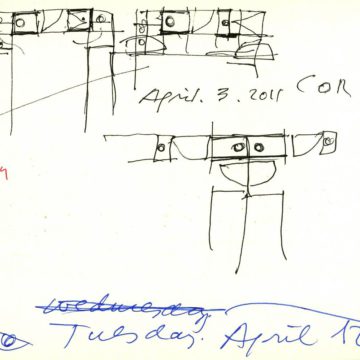 April. 3. 2011 COR
wednesday
Tuesday. April